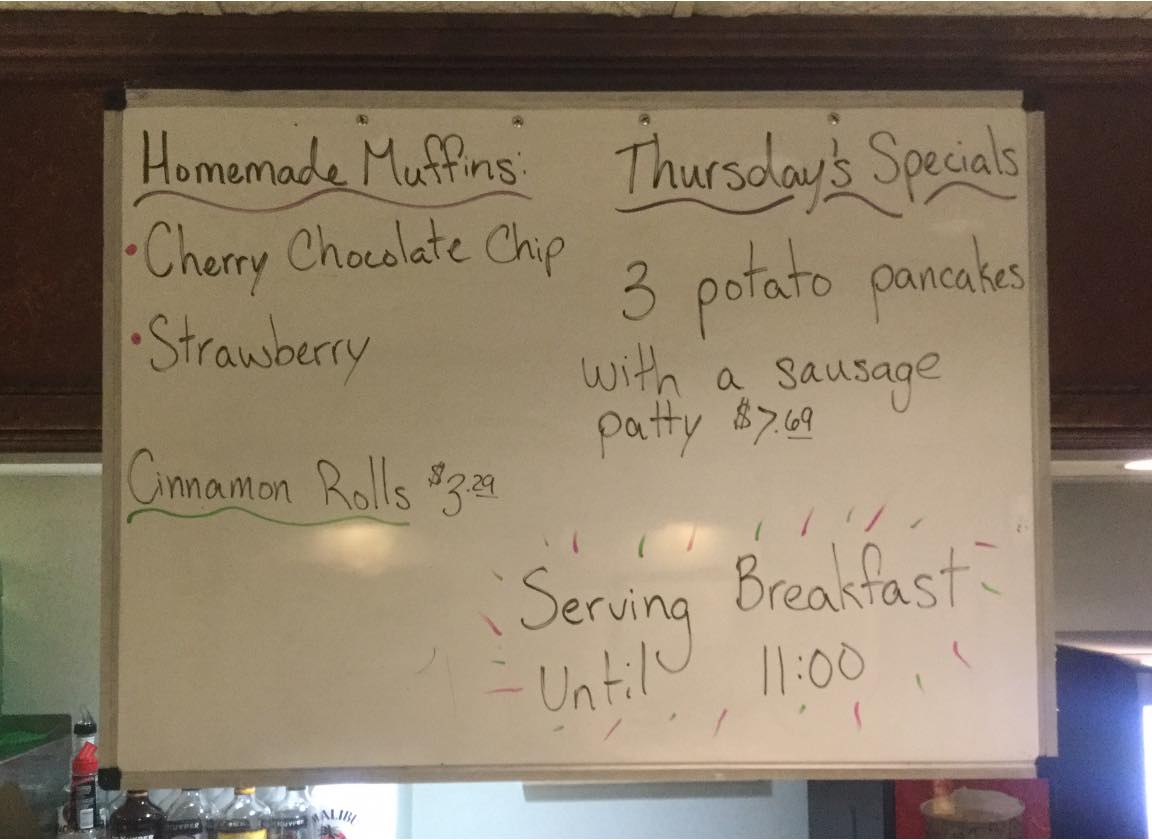 Homemade Muffins:
• Cherry Chocolate Chip
• Strawberry
Cinnamon Rolls $3.29
Thursday's Specials
3 potato pancakes
with a sausage
patty $7.69
Serving Breakfast
Until 11:00
MALIBU